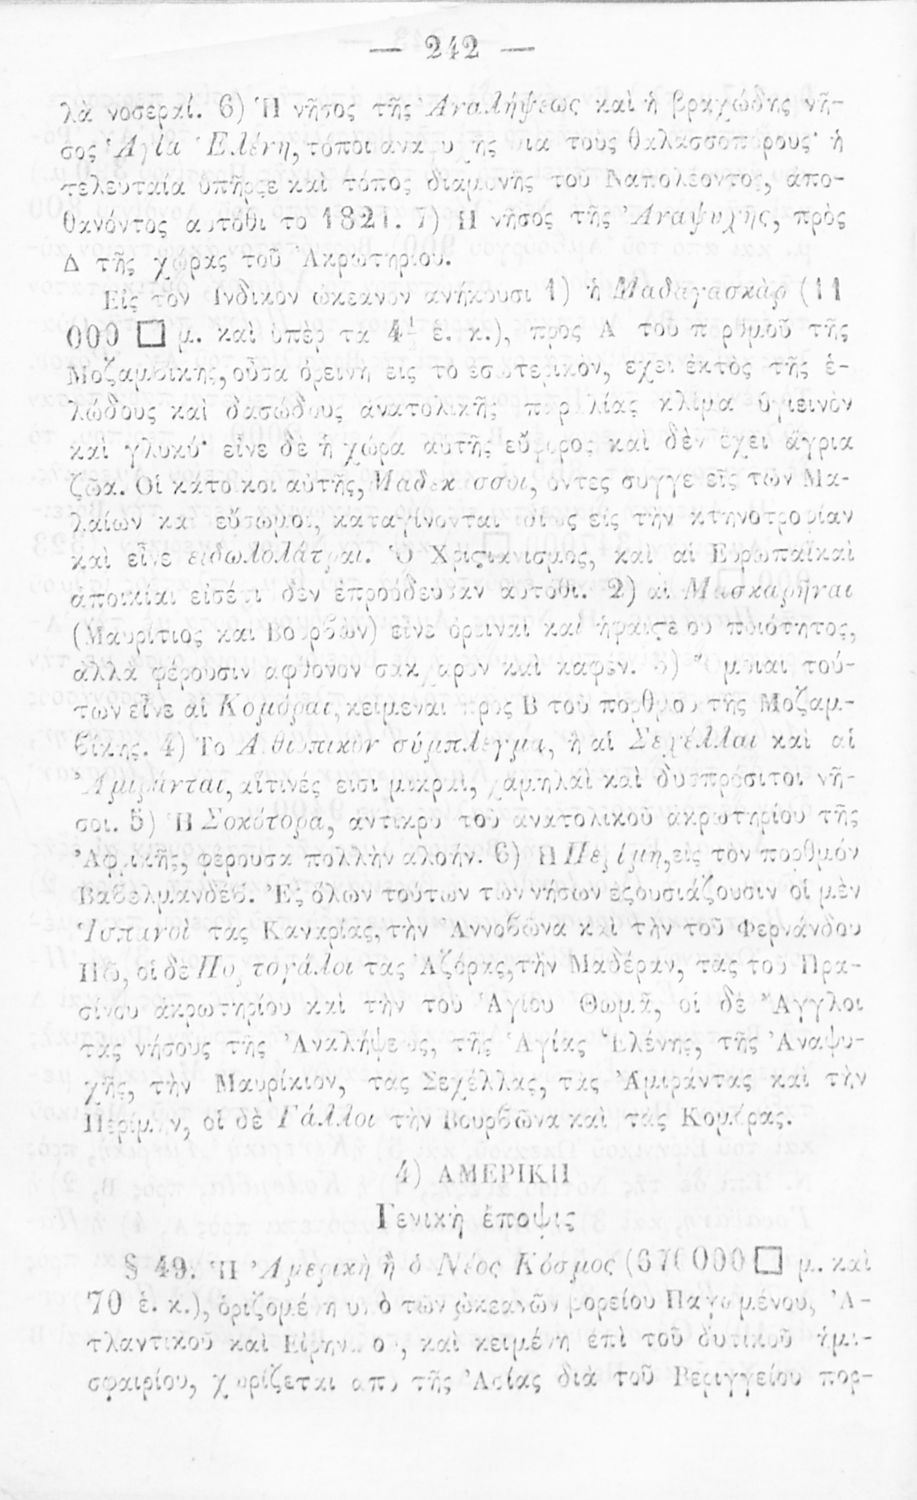 — 242 —
λὰ νοσεραί. 6) Ἡ νῆσος τῆς Ἀναλήψεως καὶ ἡ βραχώδης νῆ-
σος Ἁγία Ἑλένη, τόποι τοὺς θαλασσοπόρους· ἡ
τελευταία ὑπῆρξε καὶ τόπος διαμονῆς τοῦ Ναπολέοντος, ἀπο-
θανόντος αὐτόθι τὸ 1821. 7) Ἡ νῆσος τῆς Ἀναψυχῆς, πρὸς
Δ τῆς χώρας τοῦ Ἀκρωτηρίου.
Εἰς τὸν Ἰνδικὸν ὠκεανὸν ἀνήκουσι 1) ἡ Μαδαγασκὰρ (11
000 □ μ. καὶ ὑπὲρ τὰ 4½ ἑ. κ.), πρὸς Α τοῦ πορθμοῦ τῆς
Μοζαμβίκης, οὖσα ὀρεινὴ εἰς τὸ ἐσωτερικόν, ἔχει ἐκτὸς τῆς ἑ-
λώδους καὶ δασώδους ἀνατολικῆς παραλίας κλῖμα ὑγιεινὸν
καὶ γλυκύ· εἶνε δὲ ἡ χώρα αὐτῆς εὔφορος καὶ δὲν ἔχει ἄγρια
ζῶα. Οἱ κάτοικοι αὐτῆς, Μαδεκάσσοι, ὄντες συγγενεῖς τῶν Μα-
λαίων καὶ εὔσωμοι, καταγίνονται ἰδίως εἰς τὴν κτηνοτροφίαν
καὶ εἶνε εἰδωλολάτραι. Ὁ Χριστιανισμὸς, καὶ αἱ Εὐρωπαϊκαὶ
ἀποικίαι εἰσέτι δὲν ἐπροόδευσαν αὐτόθι. 2) αἱ Μασκαρῆναι
(Μαυρίτιος καὶ Βουρβὼν) εἶνε ὀρειναὶ καὶ ἡφαιστείου ποιότητος,
ἀλλὰ φέρουσιν ἄφθονον σάκχαρον καὶ καφέν. 3) Ὅμοιαι τού-
των εἶνε αἱ Κομόραι, κείμεναι πρὸς Β τοῦ πορθμοῦ τῆς Μοζαμ-
βίκης. 4) Τὸ Αἰθιοπικὸν σύμπλεγμα, ἢ αἱ Σεχέλλαι καὶ αἱ
Ἀμιράνται, αἵτινές εἰσι μικραί, χαμηλαὶ καὶ δυσπρόσιτοι νῆ-
σοι. 5) Ἡ Σοκότορα, ἀντικρὺ τοῦ ἀνατολικοῦ ἀκρωτηρίου τῆς
Ἀφρικῆς, φέρουσα πολλὴν ἀλόην. 6) Ἡ Περίμη, εἰς τὸν πορθμὸν
Βαβελμανδέβ. Ἐξ ὅλων τούτων τῶν νήσων ἐξουσιάζουσιν οἱ μὲν
Ἱσπανοὶ τὰς Καναρίας, τὴν Ἀννοβῶνα καὶ τὴν τοῦ Φερνάνδου
Πῶ, οἱ δὲ Πορτογάλοι τὰς Ἀζόρας, τὴν Μαδέραν, τὰς τοῦ Πρα-
σίνου ἀκρωτηρίου καὶ τὴν τοῦ Ἁγίου Θωμᾶ, οἱ δὲ Ἄγγλοι
τὰς νήσους τῆς Ἀναλήψεως, τῆς Ἁγίας Ἑλένης, τῆς Ἀναψυ-
χῆς, τὴν Μαυρίκιον, τὰς Σεχέλλας, τὰς Ἀμιράντας καὶ τὴν
Περίμην, οἱ δὲ Γάλλοι τὴν Βουρβῶνα καὶ τὰς Κομόρας.
4) ΑΜΕΡΙΚΗ
Γενικὴ ἔποψις
§ 49. Ἡ Ἀμερικὴ ἢ ὁ Νέος Κόσμος ( □ μ. καὶ
70 ἑ. κ.), ὁριζομένη ὑπὸ τῶν ὠκεανῶν βορείου Παγωμένου, Ἀ-
τλαντικοῦ καὶ Εἰρηνικοῦ, καὶ κειμένη ἐπὶ τοῦ δυτικοῦ ἡμι-
σφαιρίου, χωρίζεται ἀπὸ τῆς Ἀσίας διὰ τοῦ Βεριγγείου πορ-